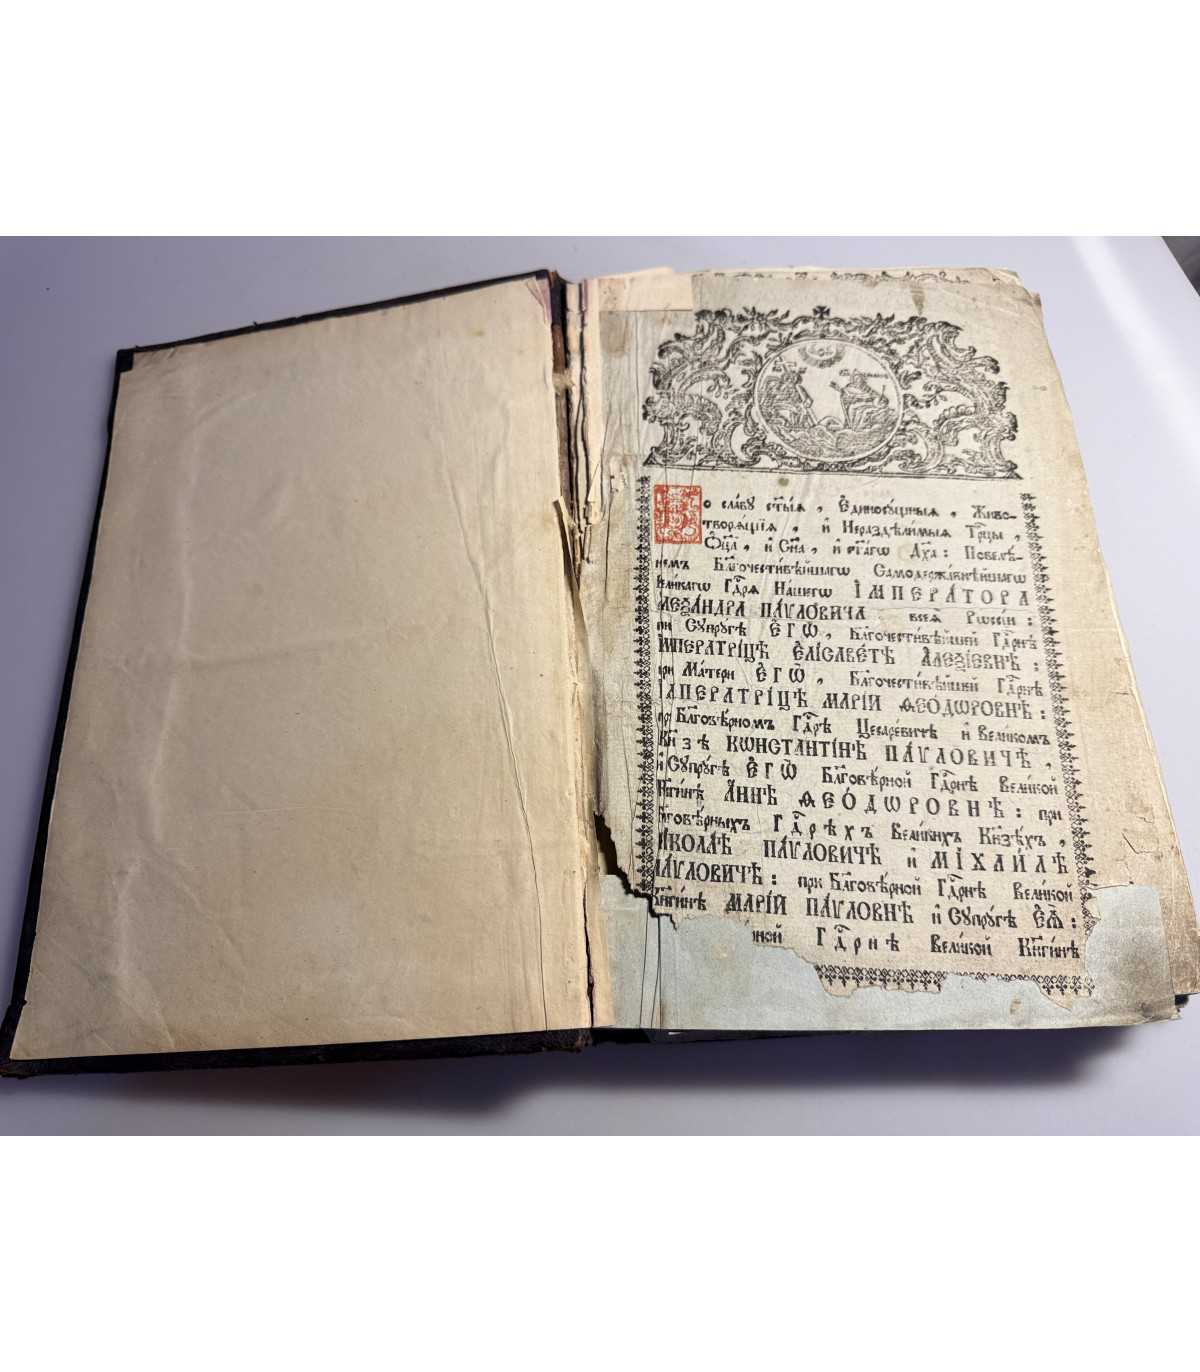 Во сла́вꙋ ст҃ы́ѧ, Е҆диносꙋ́щныѧ, Живо-
творѧ́щїѧ, и҆ Нераздѣли́мыѧ Трⷪ҇цы,
Ѻ҆ц҃а̀, и҆ Сн҃а, и҆ ст҃а́гѡ Дх҃а: Повелѣ́-
нїемъ Бл҃гочести́вѣйшагѡ Самодержа́внѣйшагѡ
вели́кагѡ Гдⷭ҇рѧ На́шегѡ І҆МПЕРА́ТОРА
ЛЕѮА́НДРА ПА́ѴЛОВИЧА всеѧ̀ Рѡссі́и:
при Сꙋпрꙋ́гѣ Е҆ГѠ̀, Бл҃гочести́вѣйшей Гдⷭ҇рнѣ
І҆МПЕРАТРІ́ЦѢ Е҆ЛІСАВЕ́ТѢ А҆ЛЕѮІ́ЕВНѢ:
при Ма́тери Е҆ГѠ̀, Бл҃гочести́вѣйшей Гдⷭ҇рнѣ
І҆МПЕРАТРІ́ЦѢ МАРІ́И ѲЕО́ДѠРОВНѢ:
пр Бл҃говѣ́рномъ Гдⷭ҇рѣ Цесаре́вичѣ и҆ Вели́комъ
Кн҃зѣ КѠНСТАНТІ́НѢ ПА́ѴЛОВИЧѢ,
и҆ Сꙋпрꙋ́гѣ Е҆ГѠ̀ Бл҃говѣ́рной Гдⷭ҇рнѣ Вели́кой
Кн҃ги́нѣ А҆́ННѢ ѲЕО́ДѠРОВНѢ: при
Бл҃говѣ́рныхъ Гдⷭ҇рѣхъ Вели́кихъ Кн҃зѣхъ,
ИКОЛА́Ѣ ПА́ѴЛОВИЧѢ и҆ МІХАИ́ЛѢ
ПА́ѴЛОВИЧѢ: при Бл҃говѣ́рной Гдⷭ҇рнѣ Вели́кой
Кн҃ги́нѣ МАРІ́И ПА́ѴЛОВНѢ и҆ Сꙋпрꙋ́гѣ Е҆Ѧ̀:
рной Гдⷭ҇рнѣ Вели́кой Кн҃ги́нѣ